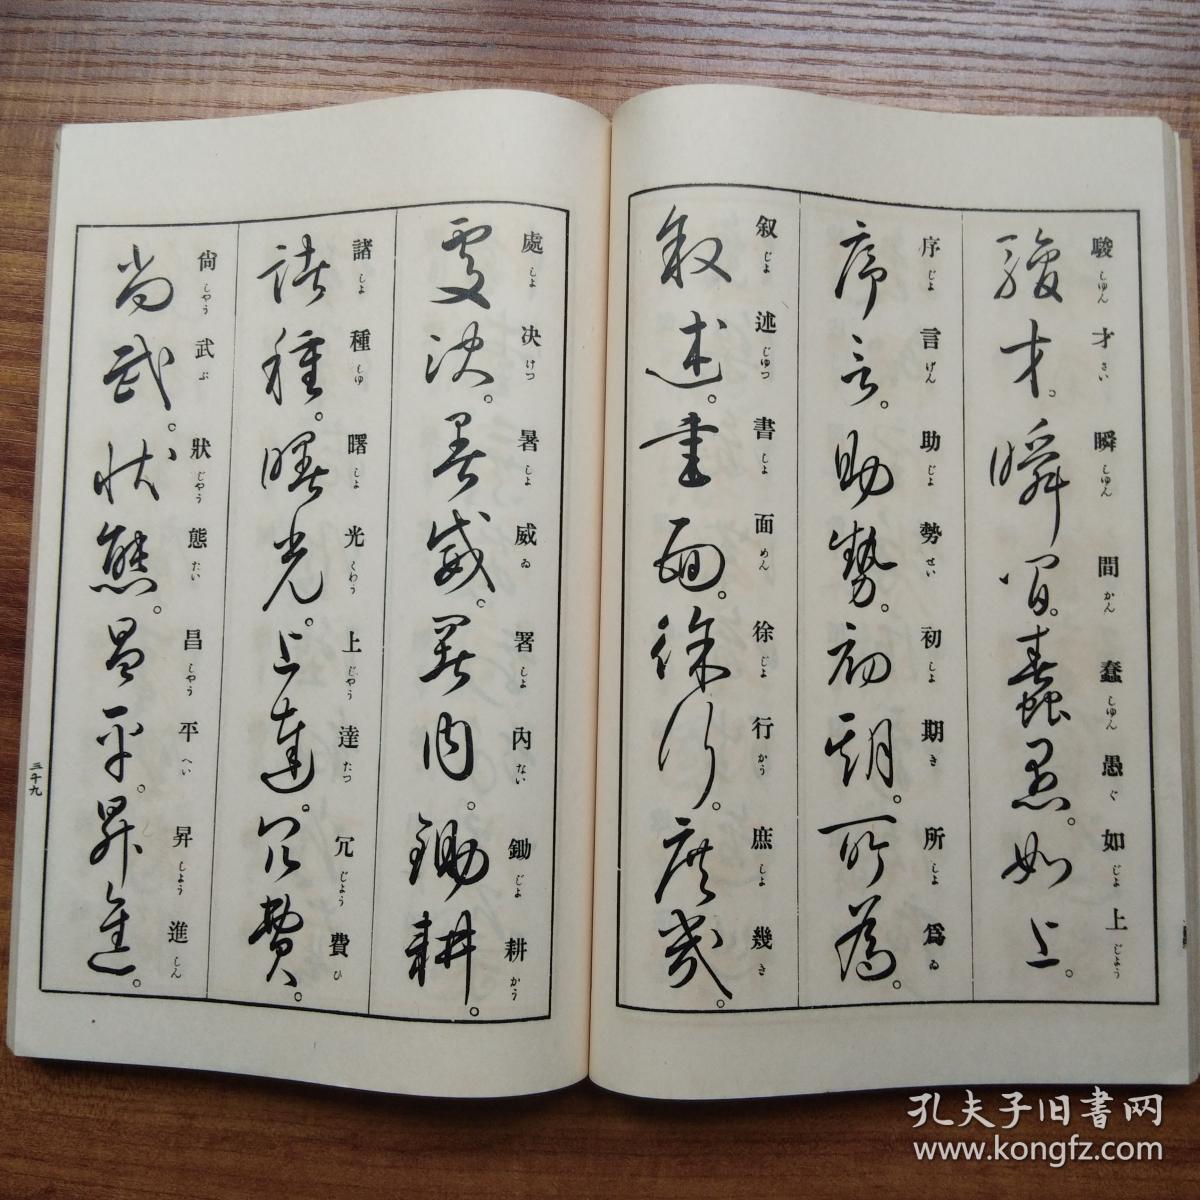 駿しゆん才さい瞬しゆん間かん蠢しゆん愚ぐ如じよ上じよう
駿才。瞬間。蠢愚。如上。
序じよ言げん助じよ勢せい初しよ期き所しよ爲ゐ
序言。助勢。初期。所為。
叙じよ述じゆつ書しよ面めん徐じよ行かう庶しよ幾き
叙述。書面。徐行。庶幾。
處しよ决けつ暑しよ威ゐ署しよ內ない鋤じよ耕かう
處决。暑威。署內。鋤耕。
諸しよ種しゆ曙しよ光くわう上じやう達たつ冗じよう費ひ
諸種。曙光。上達。冗費。
尙しやう武ぶ狀じやう態たい昌しやう平へい昇しよう進しん
尚武。狀態。昌平。昇進。
三十九
孔夫子旧书网
www.kongfz.com